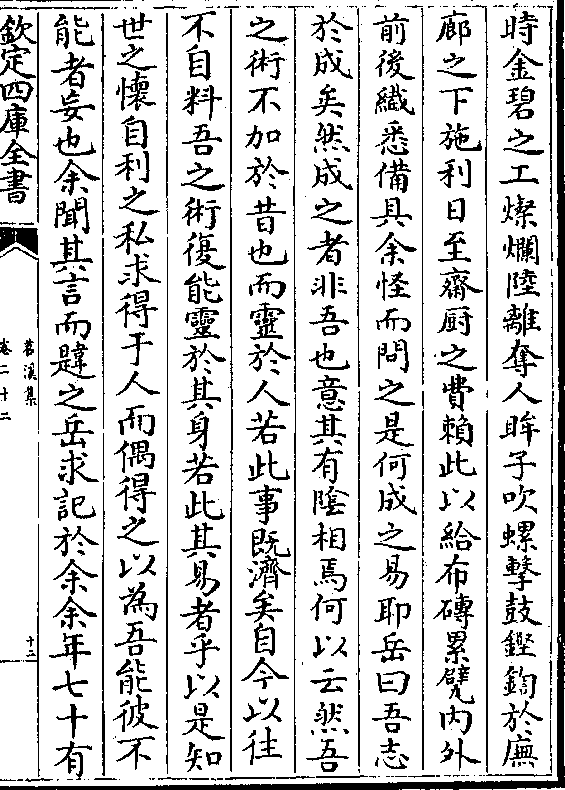 時金碧之工燦爛陸離奪人眸子吹螺擊鼓鏗鍧於廡
廊之下施利日至齋厨之費賴此以給布磚累甓内外
前後纎悉備具余怪而問之是何成之易耶岳曰吾志
於成矣然成之者非吾也意其有陰相焉何以云然吾
之術不加於昔也而靈於人若此事既濟矣自今以往
不自料吾之術復能靈於其身若此其易者乎以是知
世之懷自利之私求得于人而偶得之以為吾能彼不
能者妄也余聞其言而韙之岳求記於余余年七十有
欽定四庫全書
苕溪集
卷二十二
十二